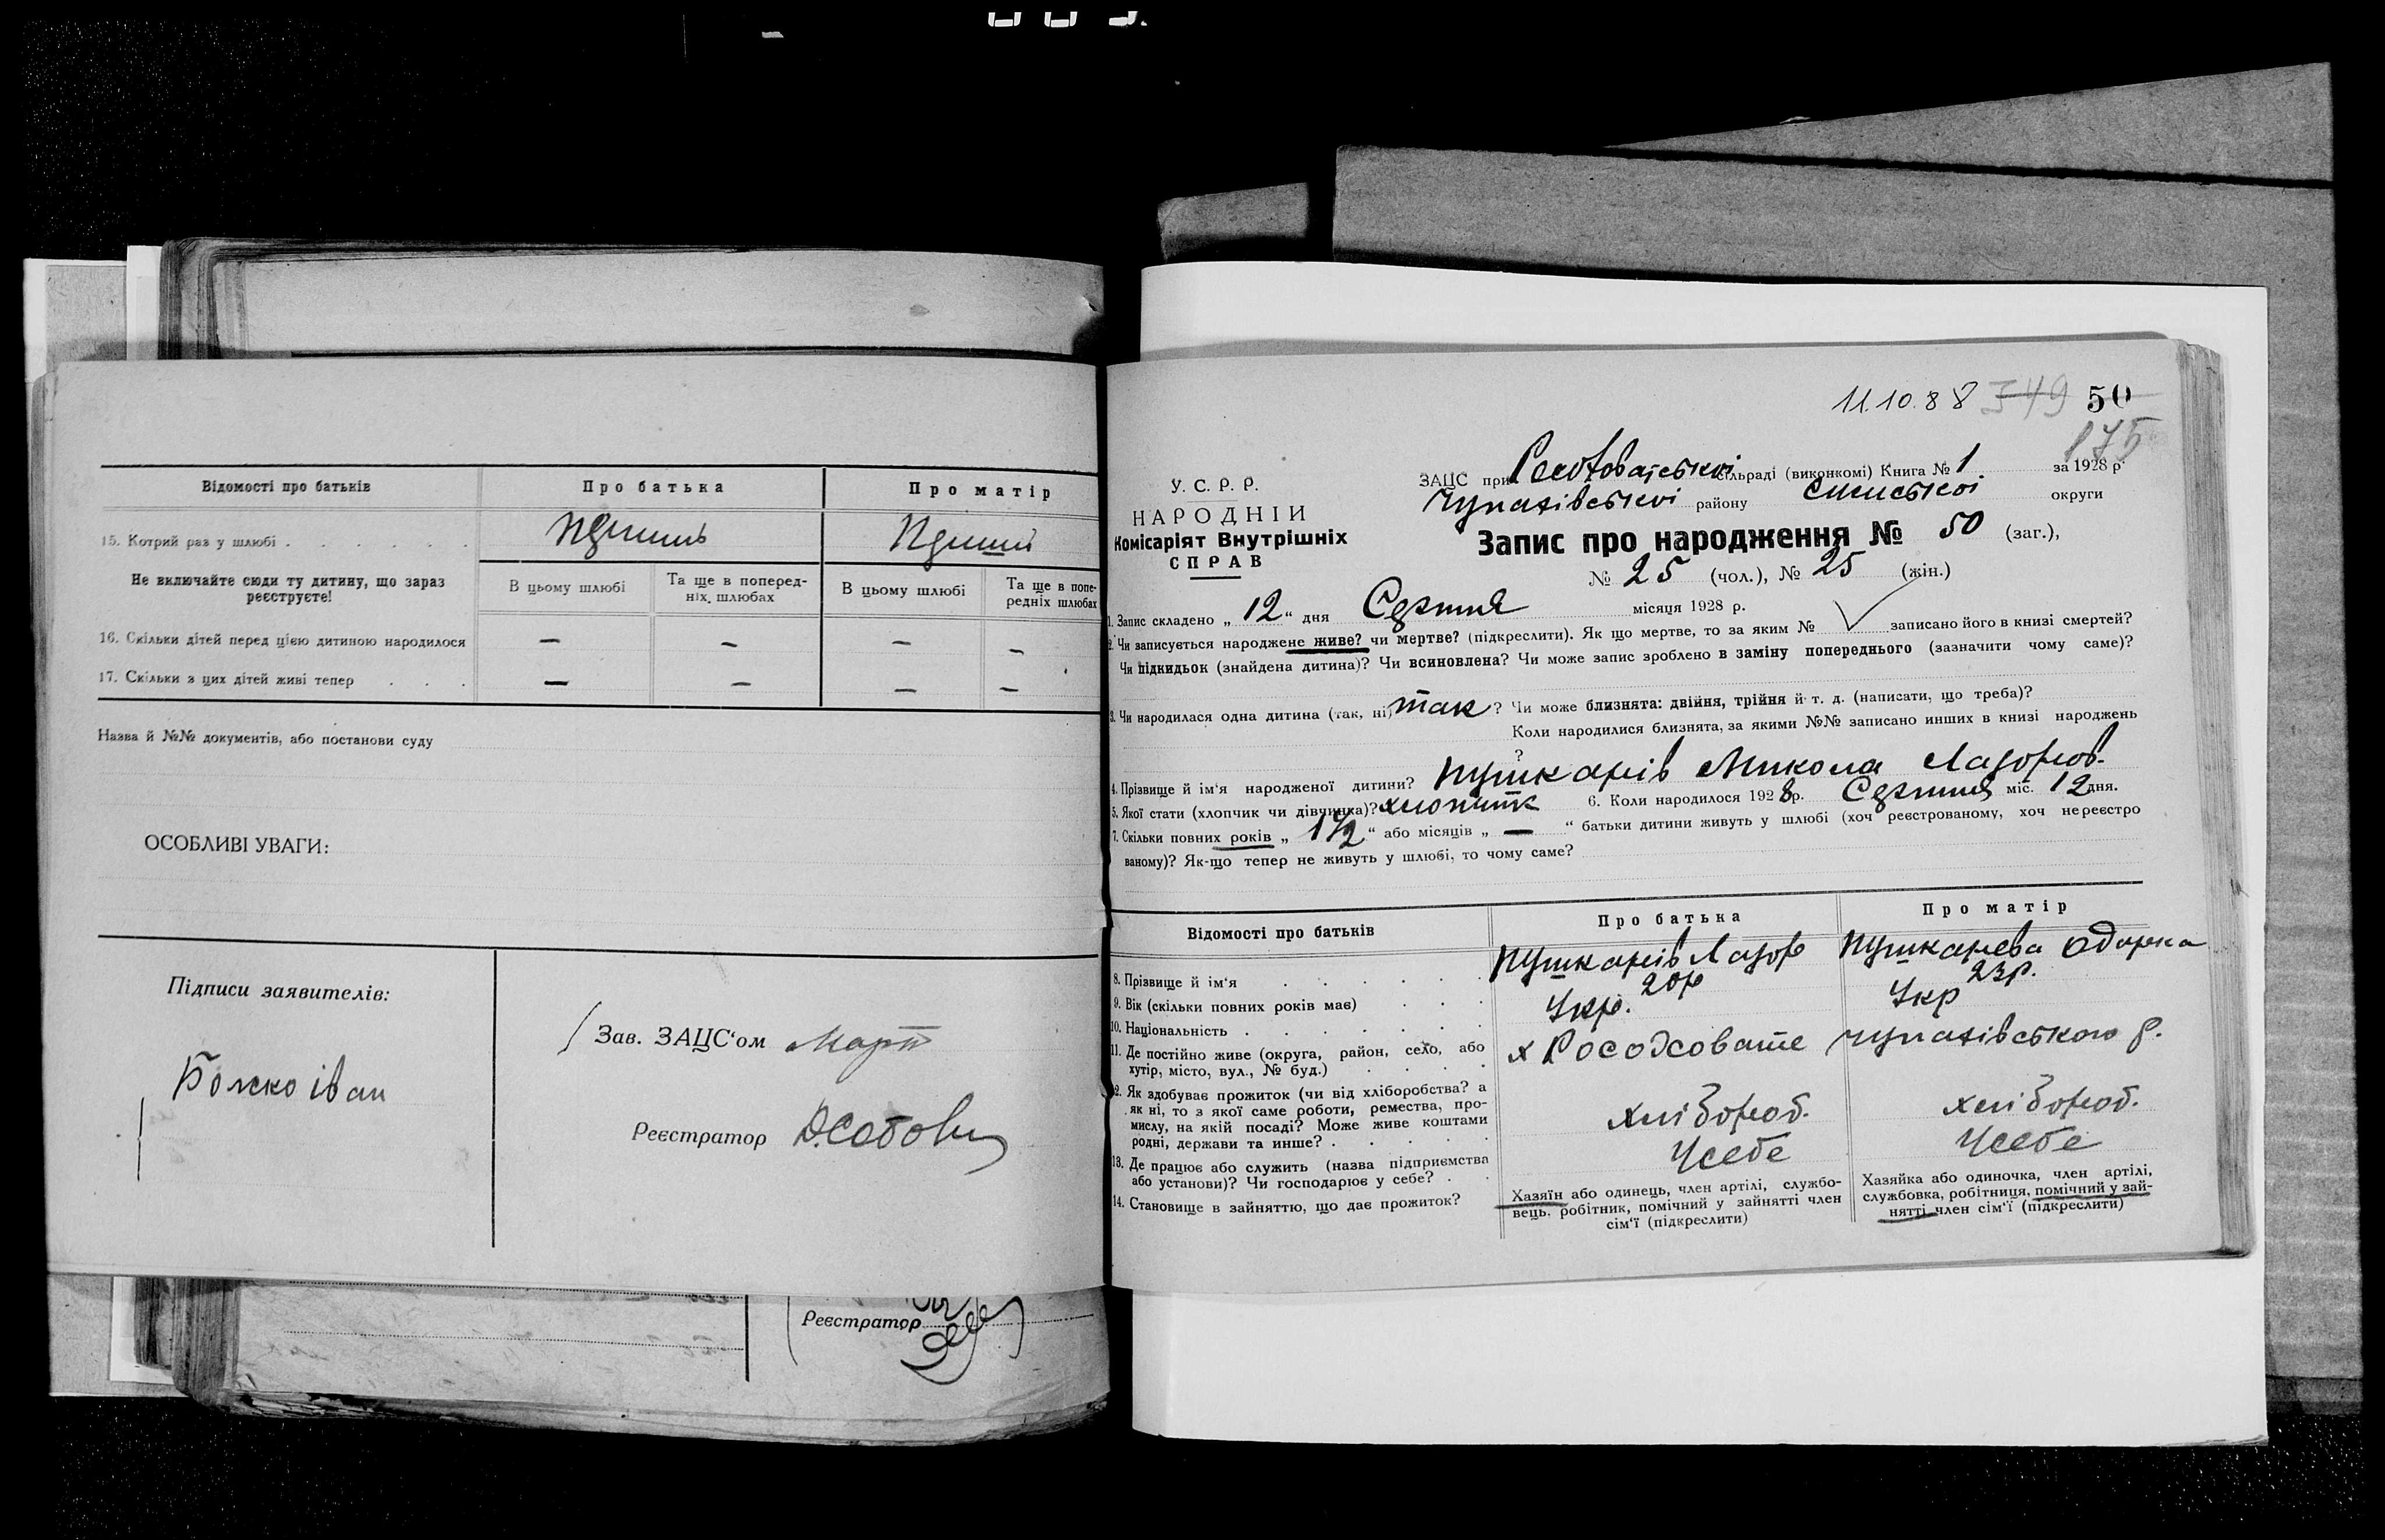 Відомості про батьків Про батька Про матір
15. Котрий раз у шлюбі
Не включайте сюди ту дитину, що зараз
реєструєте!
В цьому шлюбі Та ще в поперед- В цьому шлюбі Та ще в попе-
ніх. шлюбах редніх шлюбах
16. Скільки дітей перед цією дитиною народилося — — — —
17. Скільки з цих дітей живі тепер — — — —
Назва й №№ документів, або постанови суду
ОСОБЛИВІ УВАГИ:
Підписи заявителів:
Зав. ЗАЦС'ом
Божко іван
Реєстратор
Реєстратор
11.10.88 349 50
175
У. С. Р. Р.
НАРОДНІЙ
Комісаріят Внутрішніх
СПРАВ
ЗАЦС при сільраді (виконкомі) Книга № 1 за 1928 р.
Чупахівської району Сумської округи
Запис про народження № 50 (заг.),
№ 25 (чол.), № 25 (жін.)
1. Запис складено „ 12 “ дня Серпня місяця 1928 р.
2. Чи записується народжене живе? чи мертве? (підкреслити). Як що мертве, то за яким № записано його в книзі смертей?
Чи підкидьок (знайдена дитина)? Чи всиновлена? Чи може запис зроблено в заміну попереднього (зазначити чому саме)?
3. Чи народилася одна дитина (так, ні) так ? Чи може близнята: двійня, трійня й т. д. (написати, що треба)?
Коли народилися близнята, за якими №№ записано инших в книзі народжень
?
4. Прізвище й ім'я народженої дитини? Пушкарів Микола Лазоров.
5. Якої стати (хлопчик чи дівчинка)? хлопчик 6. Коли народилося 1928 р. Серпня міс. 12 дня.
7. Скільки повних років „ 1½ “ або місяців „ — “ батьки дитини живуть у шлюбі (хоч реєстрованому, хоч нереєстро
ваному)? Як-що тепер не живуть у шлюбі, то чому саме?
Відомості про батьків Про батька Про матір
8. Прізвище й ім'я Пушкарів Лазор Пушкарева Одарка
9. Вік (скільки повних років має) 20р 23р.
10. Національність Укр. Укр
11. Де постійно живе (округа, район, село, або
хутір, місто, вул., № буд.) х Росоховате Чупахівського р.
12. Як здобуває прожиток (чи від хліборобства? а
як ні, то з якої саме роботи, ремества, про-
мислу, на якій посаді? Може живе коштами
родні, держави та инше? хлібороб. хлібороб.
13. Де працює або служить (назва підприємства
або установи)? Чи господарює у себе? Усебе Усебе
14. Становище в зайняттю, що дає прожиток?
Хазяїн або одинець, член артілі, службо-
вець, робітник, помічний у зайнятті член
сім'ї (підкреслити)
Хазяйка або одиночка, член артілі,
службовка, робітниця, помічний у зай-
нятті член сім'ї (підкреслити)